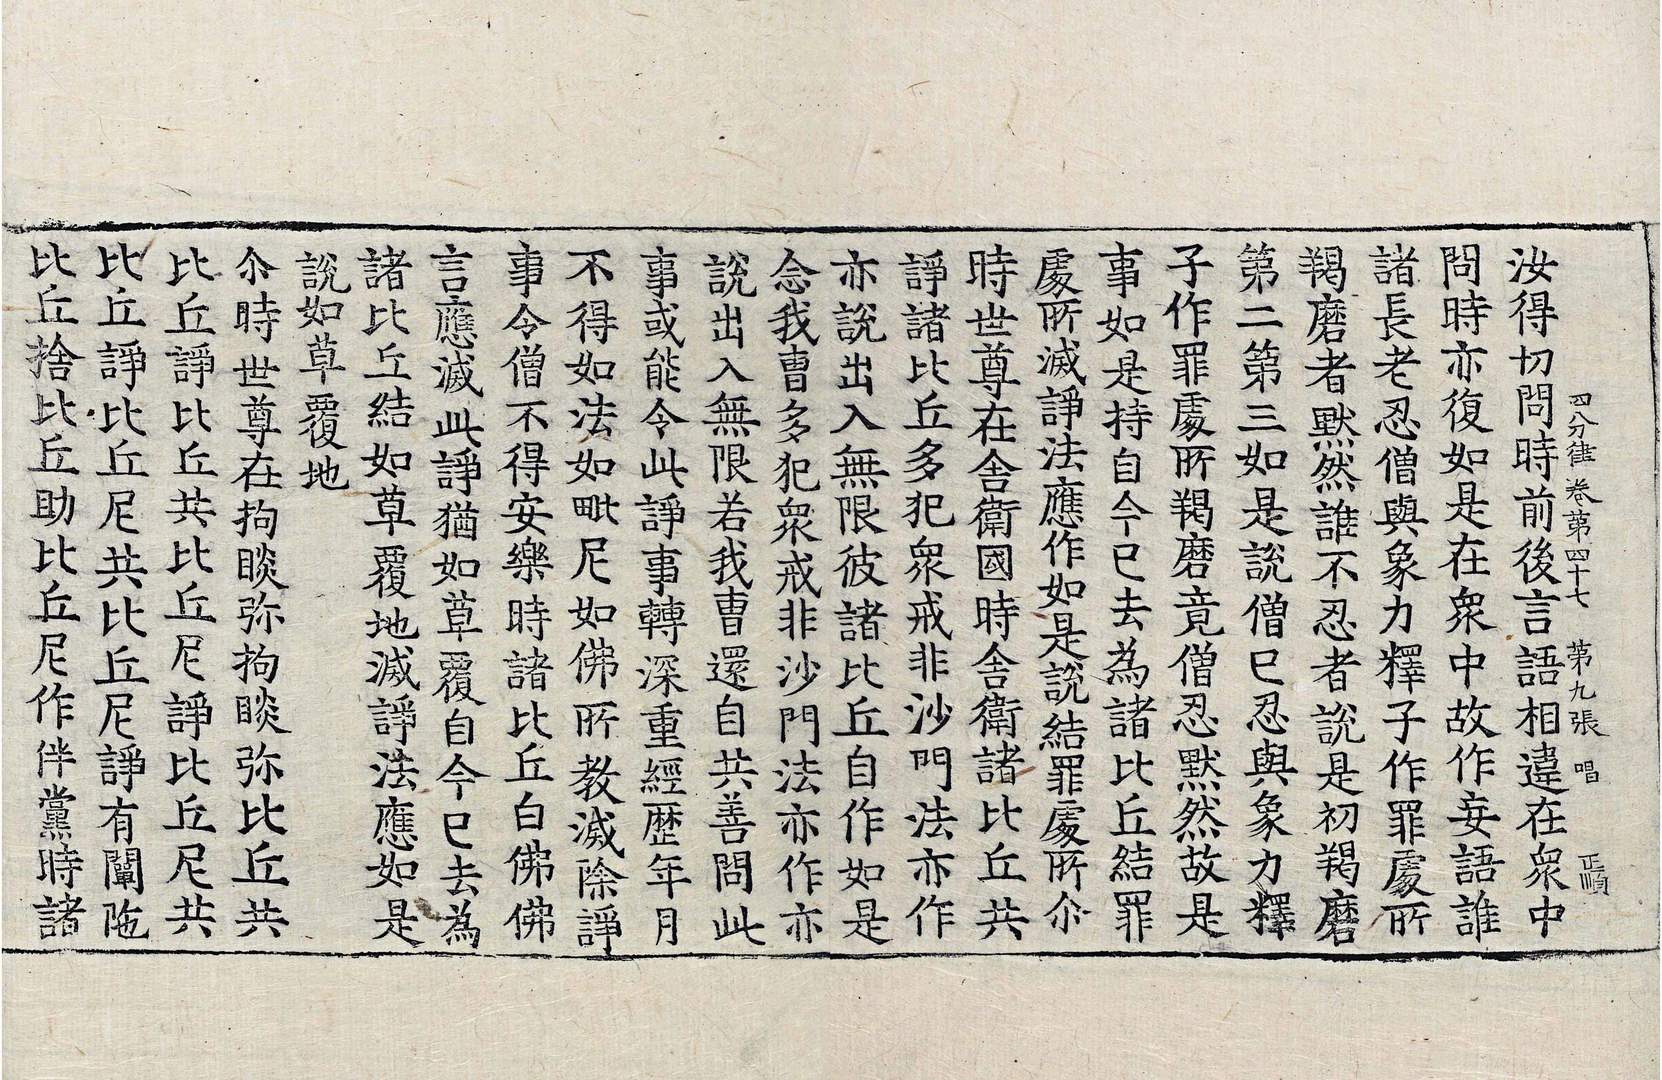 四分律卷第四十七 第九張 唱 正順
汝得切問時前後言語相違在衆中
問時亦復如是在衆中故作妄語誰
諸長老忍僧與象力釋子作罪處所
羯磨者默然誰不忍者說是初羯磨
第二第三如是說僧已忍與象力釋
子作罪處所羯磨竟僧忍默然故是
事如是持自今已去為諸比丘結罪
處所滅諍法應作如是說結罪處所尒
時世尊在舍衛國時舍衛諸比丘共
諍諸比丘多犯衆戒非沙門法亦作
亦說出入無限彼諸比丘自作如是
念我曹多犯衆戒非沙門法亦作亦
說出入無限若我曹還自共善問此
事或能令此諍事轉深重經歷年月
不得如法如毗尼如佛所教滅除諍
事令僧不得安樂時諸比丘白佛佛
言應滅此諍猶如草覆自今已去為
諸比丘結如草覆地滅諍法應如是
說如草覆地
尒時世尊在拘睒弥拘睒弥比丘共
比丘諍比丘共比丘尼諍比丘尼共
比丘諍比丘尼共比丘尼諍有闡陁
比丘捨比丘助比丘尼作伴黨時諸